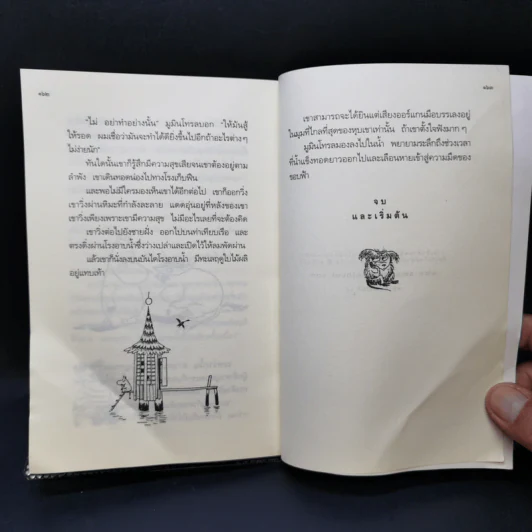 ๑๖๒
"ไม่ อย่าทำอย่างนั้น" มูมินโทรลบอก "ให้มันสู้
ให้รอด ผมเชื่อว่ามันจะทำได้ดียิ่งขึ้นไปอีกถ้าอะไรต่างๆ
ไม่ง่ายนัก"
ทันใดนั้นเขาก็รู้สึกมีความสุขเสียจนเขาต้องอยู่ตาม
ลำพัง เขาเดินทอดน่องไปทางโรงเก็บฟืน
และพอไม่มีใครมองเห็นเขาได้อีกต่อไป เขาก็ออกวิ่ง
เขาวิ่งผ่านหิมะที่กำลังละลาย แดดอุ่นอยู่ที่หลังของเขา
เขาวิ่งเพียงเพราะเขามีความสุข ไม่มีอะไรเลยที่จะต้องคิด
เขาวิ่งต่อไปยังชายฝั่ง ออกไปบนท่าเทียบเรือ และ
ตรงดิ่งผ่านโรงอาบน้ำซึ่งว่างเปล่าและเปิดไว้ให้ลมพัดผ่าน
แล้วเขาก็นั่งลงบนบันไดโรงอาบน้ำ มีทะเลฤดูใบไม้ผลิ
อยู่แทบเท้า
๑๖๓
เขาสามารถจะได้ยินแต่เสียงออร์แกนมือบรรเลงอยู่
ในมุมที่ไกลที่สุดของหุบเขาเท่านั้น ถ้าเขาตั้งใจฟังมากๆ
มูมินโทรลมองลงไปในน้ำ พยายามระลึกถึงช่วงเวลา
ที่น้ำแข็งทอดยาวออกไปและเลือนหายเข้าสู่ความมืดของ
ขอบฟ้า
จบ
และเริ่มต้น